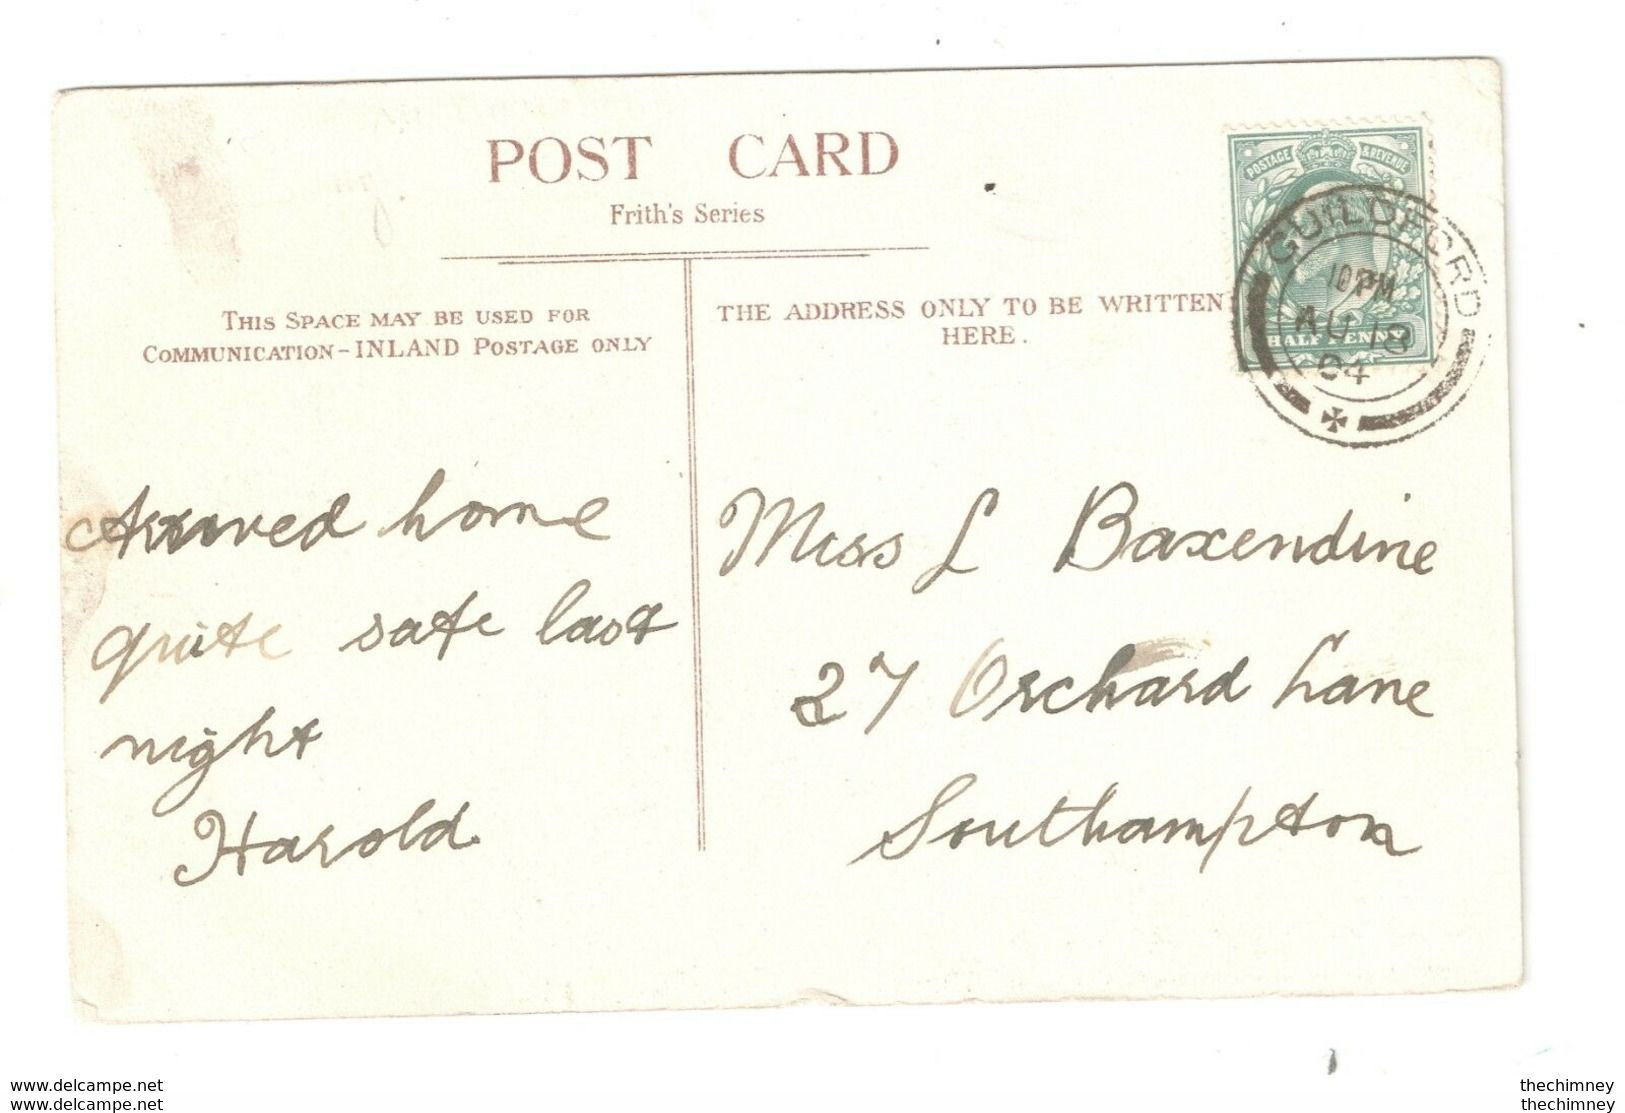 POST CARD
Frith's Series
THIS SPACE MAY BE USED FOR
COMMUNICATION-INLAND POSTAGE ONLY
THE ADDRESS ONLY TO BE WRITTEN
HERE.
POSTAGE & REVENUE
HALF PENNY
GUILDFORD
10 PM
AU 18
04
Arrived home
quite safe last
night
Harold
Miss L Baxendine
27 Orchard Lane
Southampton
www.delcampe.net
www.delcampe.net
thechimney
thechimney